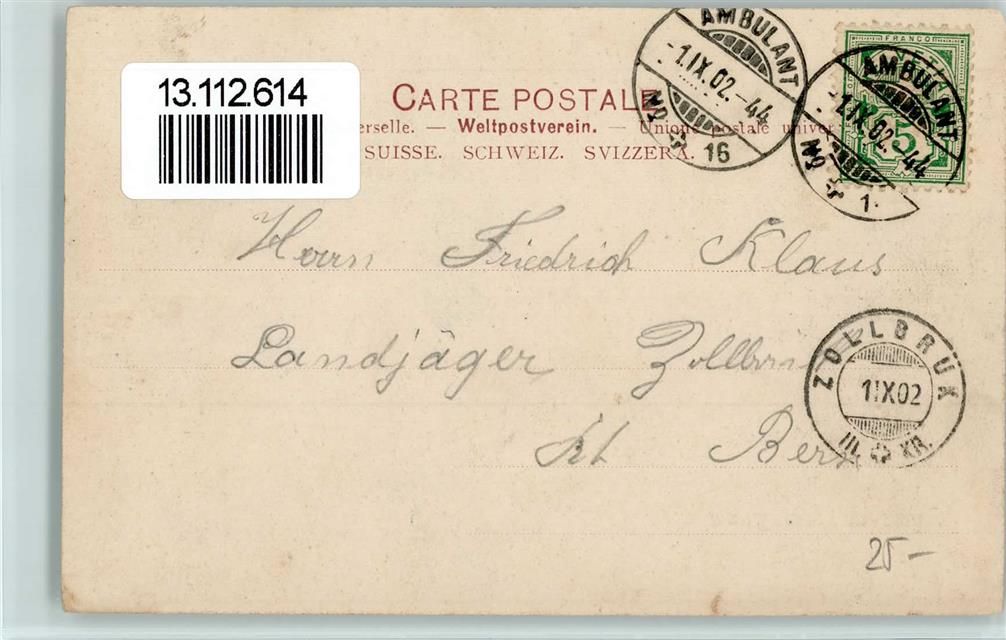 13.112.614
CARTE POSTALE
erselle. — Weltpostverein. — Union postale univer
SUISSE. SCHWEIZ. SVIZZERA.
AMBULANT
-1.IX.02.-44
No 16
FRANCO
5
AMBULANT
-1.IX.02.-44
No 1
Herrn Friedrich Klaus
Landjäger
Kt Bern
ZOLLBRÜK
1IX02
III. KR.
25-